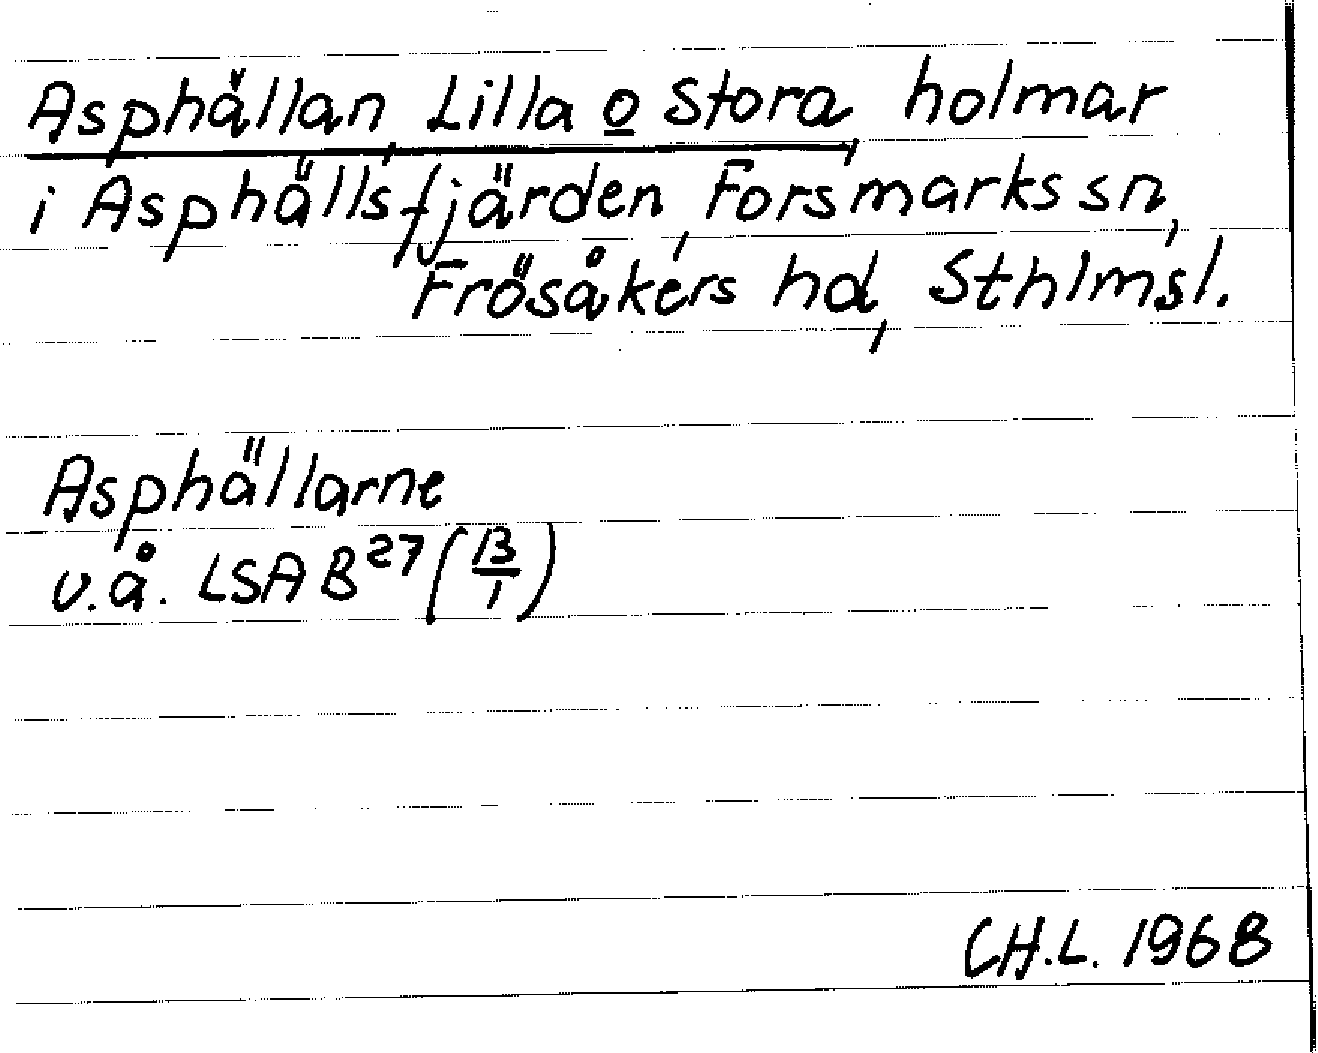 Asphällan, Lilla o Stora, holmar
i Asphällsfjärden, Forsmarks sn,
Frösåkers hd, Sthlmsl.
Asphällarne
u.å. LSA B²⁷ (B/1)
CH.L. 1968